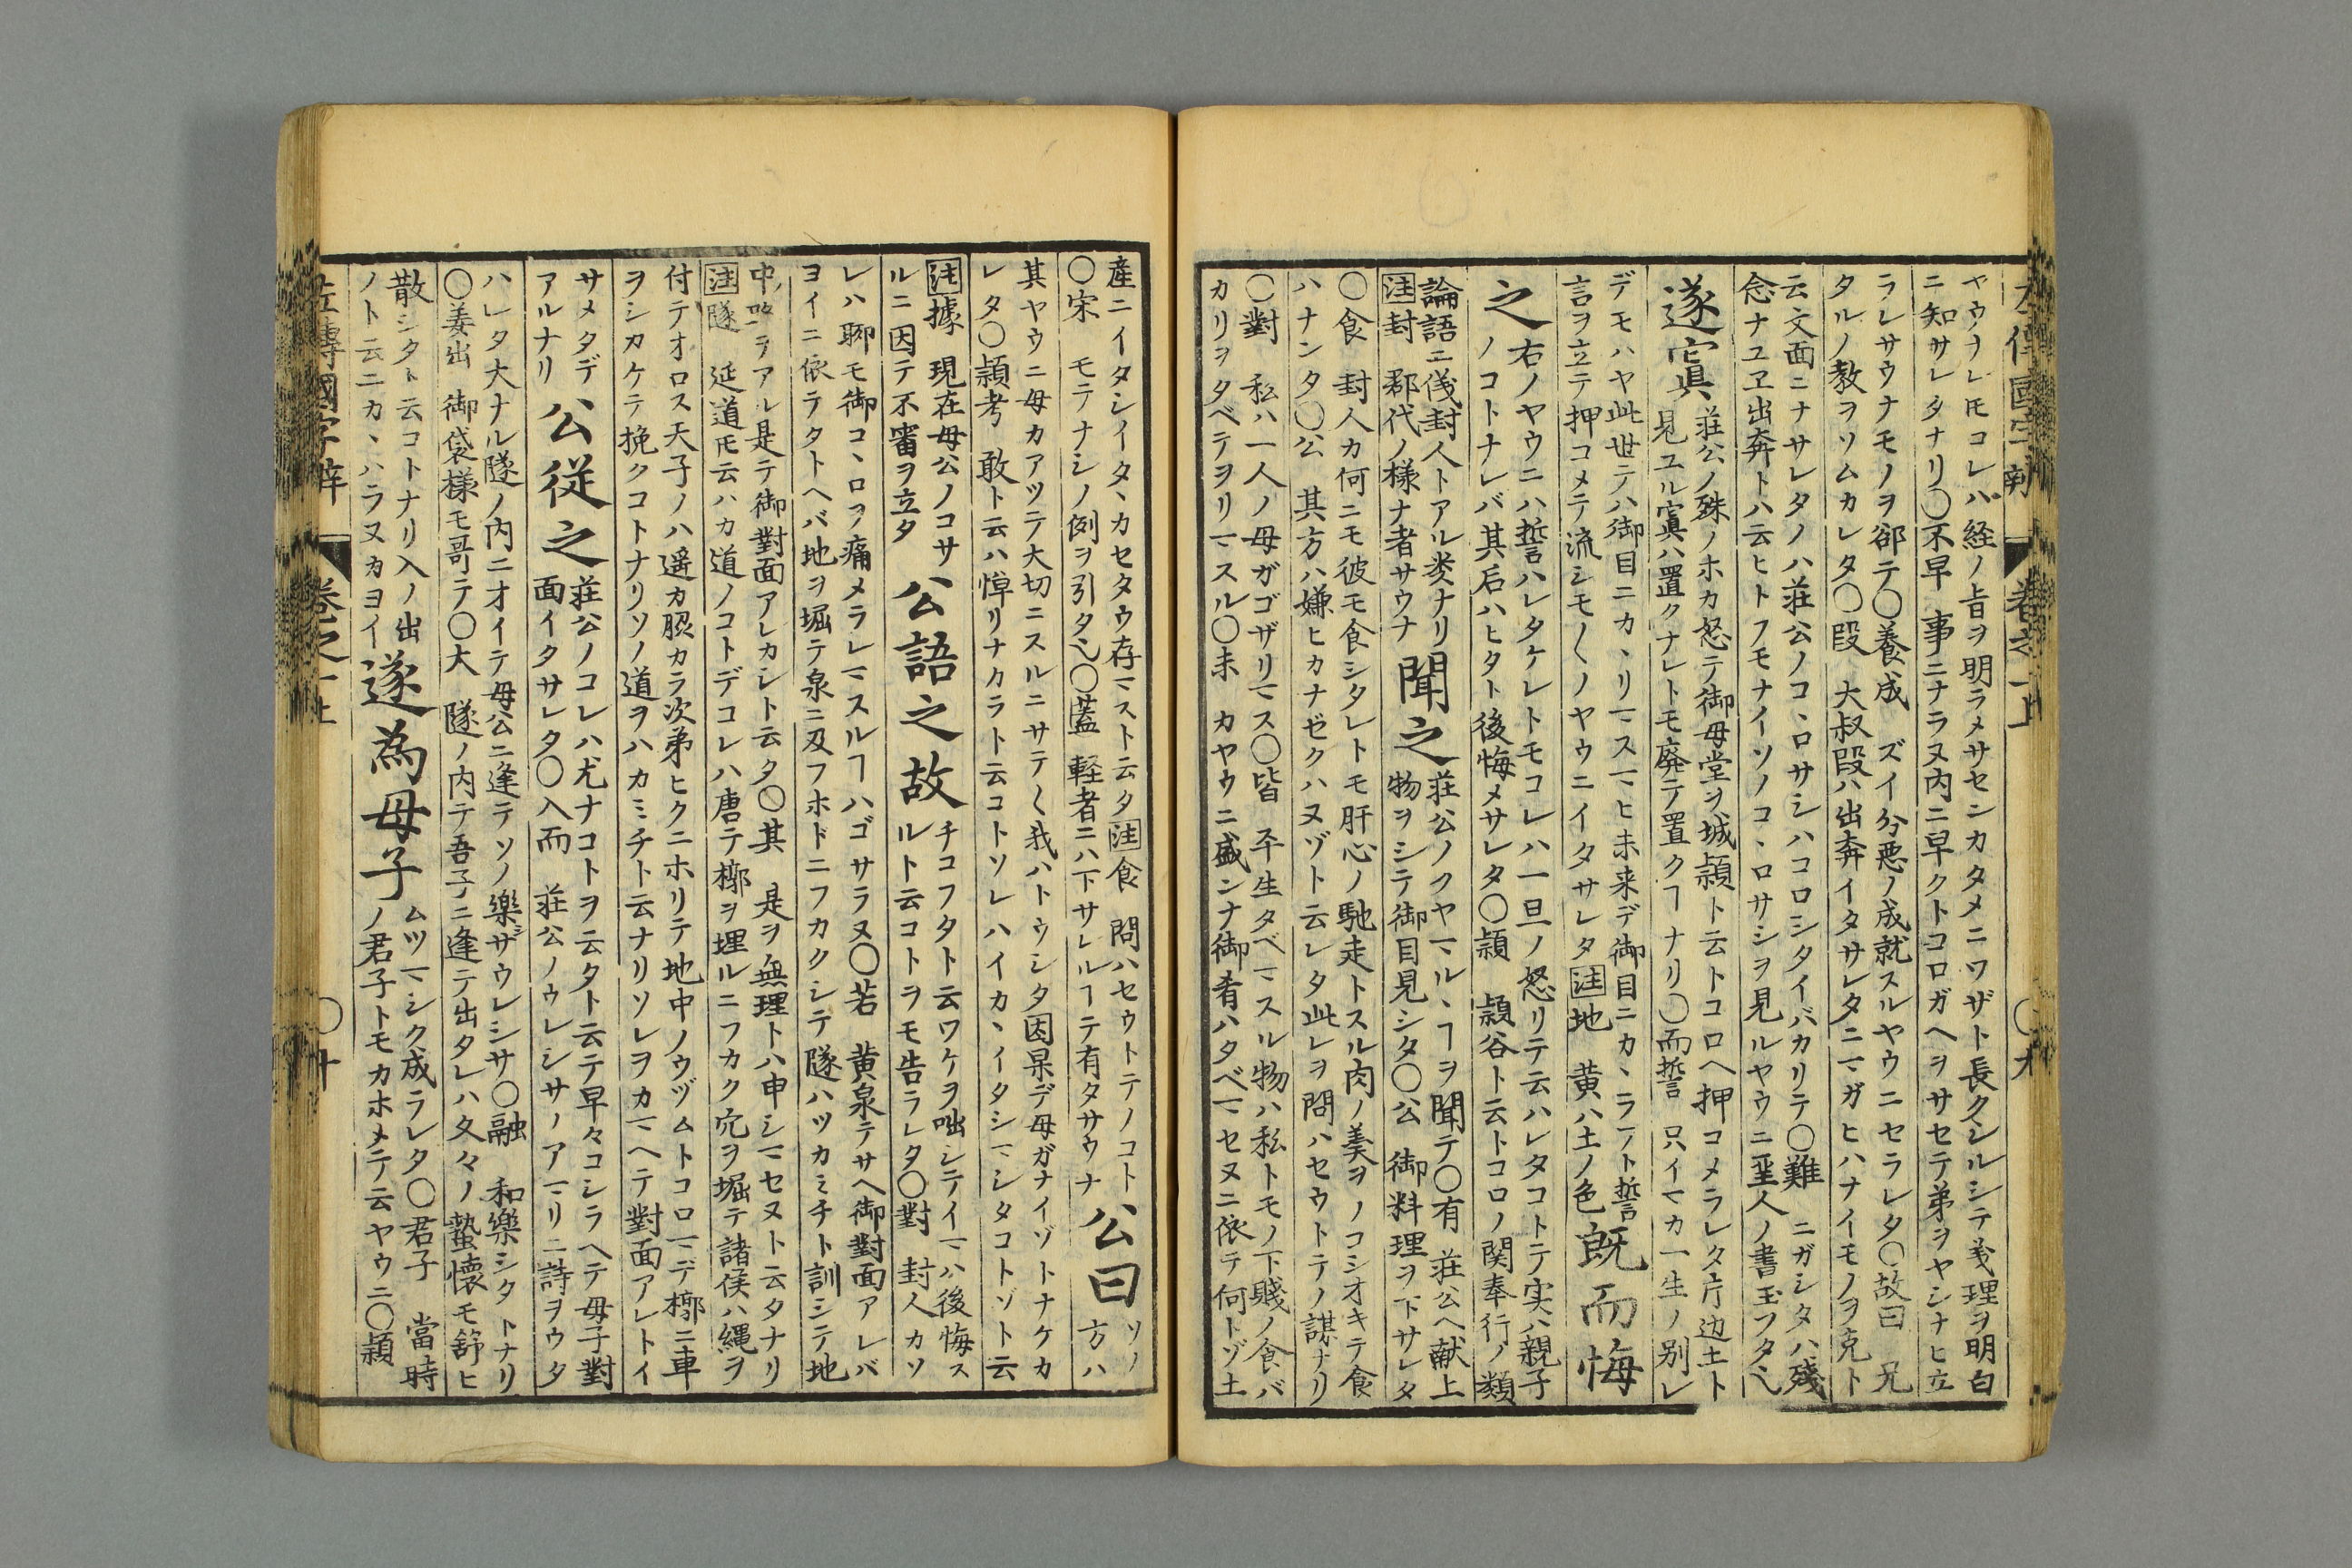 ヤウナレ𪜈コレハ経ノ旨ヲ明ラメサセンカタメニワザト長クシルシテ義理ヲ明白
ニ知サレタナリ〇不早　事ニナラヌ内ニ早クトコロガヘヲサセテ弟ヲヤシナヒ立
ラレサウナモノヲ郤テ〇養成　ズイ分悪ノ成就スルヤウニセラレタ〇故曰　兄
タルノ教ヲソムカレタ〇段　大叔段ハ出奔イタサレタニマガヒハナイモノヲ克ト
云文面ニナサレタノハ荘公ノコヽロサシハコロシタイバカリテ〇難　ニガシタハ残
念ナユヱ出奔トハ云ヒトフモナイソノコヽロサシヲ見ルヤウニ聖人ノ書玉フタヘ
遂寘
荘公ノ殊ノホカ怒テ御母堂ヲ城潁ト云トコロヘ押コメラレタ片边土ト
見ユル寘ハ置クナレトモ廃テ置クヿナリ〇而誓　只イマカ一生ノ別レ
デモハヤ此世テハ御目ニカヽリマスマヒ未来デ御目ニカヽラフト誓
言ヲ立テ押コメテ流シモ〱ノヤウニイタサレタ注地　黄ハ土ノ色
既而悔
之
右ノヤウニハ誓ハレタケレトモコレハ一旦ノ怒リテ云ハレタコトテ実ハ親子
ノコトナレバ其后ハヒタト後悔メサレタ〇潁　潁谷ト云トコロノ関奉行ノ類
論語ニ儀封人トアル类ナリ
注封　郡代ノ様ナ者サウナ
聞之
荘公ノクヤマルヽヿヲ聞テ〇有　荘公ヘ献上
物ヲシテ御目見シタ〇公　御料理ヲ下サレタ
〇食　封人カ何ニモ彼モ食シタレトモ肝心ノ馳走トスル肉ノ羹ヲノコシオキテ食
ハナンタ〇公　其方ハ嫌ヒカナゼクハヌゾト云レタ此レヲ問ハセウトテノ謀ナリ
〇對　私ハ一人ノ母ガゴザリマス〇皆　平生タベマスル物ハ私トモノ下賤ノ食バ
カリヲタベテヲリマスル〇未　カヤウニ盛ンナ御肴ハタベマセヌニ依テ何トゾ土
産ニイタシイタヽカセタウ存マスト云タ注食　問ハセウトテノコト
〇宋　モテナシノ例ヲ引タヘ〇蓋　軽者ニハ下サレルヿテ有タサウナ
公曰
ソノ
方ハ
其ヤウニ母カアツテ大切ニスルニサテ〱我ハトウシタ因果デ母ガナイゾトナケカ
レタ〇潁考　敢ト云ハ憚リナカラト云コトソレハイカヽイタシマシタコトゾト云
注據　現在母公ノコサ
ルニ因テ不審ヲ立タ
公語之故
チコフタト云ワケヲ咄シテイマハ後悔ス
ルト云コトヲモ告ラレタ〇對　封人カソ
レハ聊モ御コヽロヲ痛メラレマスルヿハゴサラヌ〇若　黄泉テサヘ御對面アレバ
ヨイニ依ラタトヘバ地ヲ堀テ泉ニ及フホドニフカクシテ隧ハツカミチト訓シテ地
中ノ路テアル是テ御對面アレカシト云タ〇其　是ヲ無理トハ申シマセヌト云タナリ
注隧　延道𪜈云ハカ道ノコトデコレハ唐テ槨ヲ埋ルニフカク穴ヲ堀テ諸侯ハ縄ヲ
付テオロス天子ノハ遥カ脇カラ次第ヒクニホリテ地中ノウヅムトコロマデ槨ニ車
ヲシカケテ挽クコトナリソノ道ヲハカミチト云ナリソレヲカマヘテ對面アレトイ
サメタデ
アルナリ
公従之
荘公ノコレハ尤ナコトヲ云タト云テ早々コシラヘテ母子對
面イタサレタ〇入而　荘公ノウレシサノアマリニ詩ヲウタ
ハレタ大ナル隧ノ内ニオイテ母公ニ逢テソノ樂ザウレシサ〇融　和樂シタトナリ
〇姜出　御袋様モ哥テ〇大　隧ノ内テ吾子ニ逢テ出タレハ久々ノ蟄懐モ舒ヒ
散シタト云コトナリ入ノ出
ノト云ニカヽハラヌカヨイ
遂為母子
ムツマシク成ラレタ〇君子　當時
ノ君子トモカホメテ云ヤウニ〇潁
左傳國字辯　巻之一上　〇十